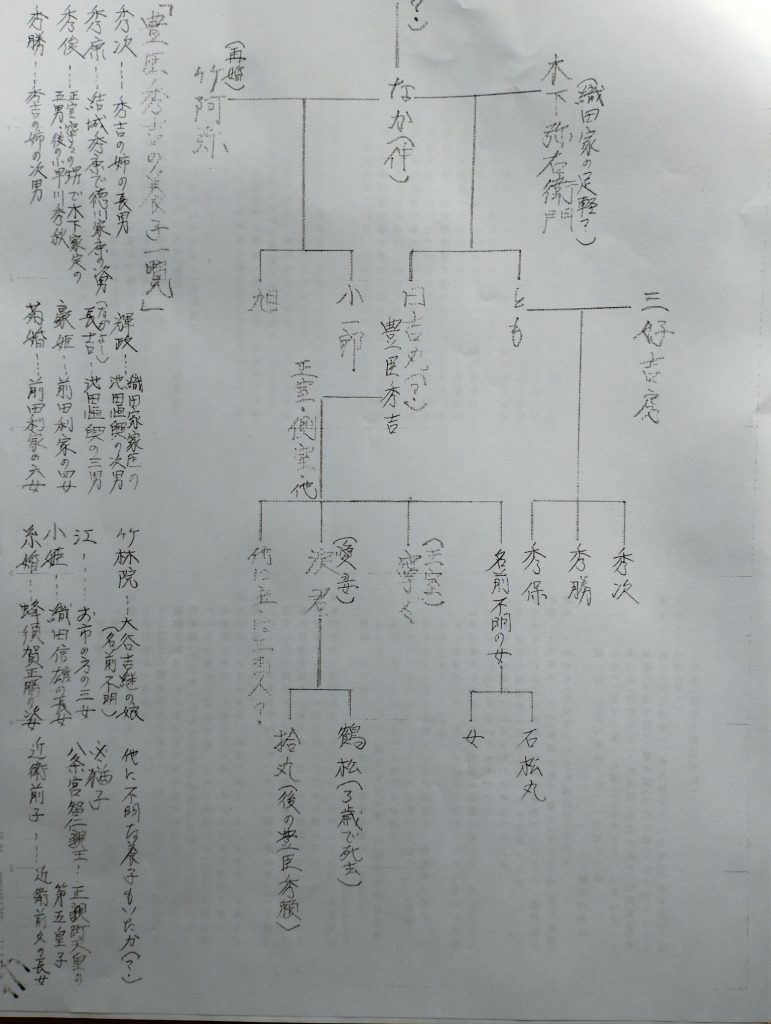 ？）
（織田家の足軽？）
木下弥右衛門
なか（仲）
（再婚）
竹阿弥
三好吉房
とも
日吉丸（？）
豊臣秀吉
小一郎
旭
正室・側室・他
秀次
秀勝
秀保
名前不明の女
（正室）
寧々
（愛妾）
淀君
他に
石松丸
女
鶴松（3歳で死去）
拾丸（後の豊臣秀頼）
「豊臣秀吉の養子一覧」
秀次……秀吉の姉の長男
秀康……結城秀康で徳川家康の次男
秀俊……正室寧々の甥で木下家定の
五男・後の小早川秀秋
秀勝……秀吉の姉の次男
輝政……織田家家臣の
池田恒興の次男
（ながよし）
長吉……池田恒興の三男
豪姫……前田利家の四女
菊姫……前田利家の六女
竹林院……大谷吉継の娘
（名前不明）
江……お市の方の三女
小姫……織田信雄の長女
糸姫……蜂須賀正勝の娘
他に不明な養子もいたか（？）
※猶子
八条宮智仁親王…正親町天皇の
第五皇子
近衛前子……近衛前久の長女